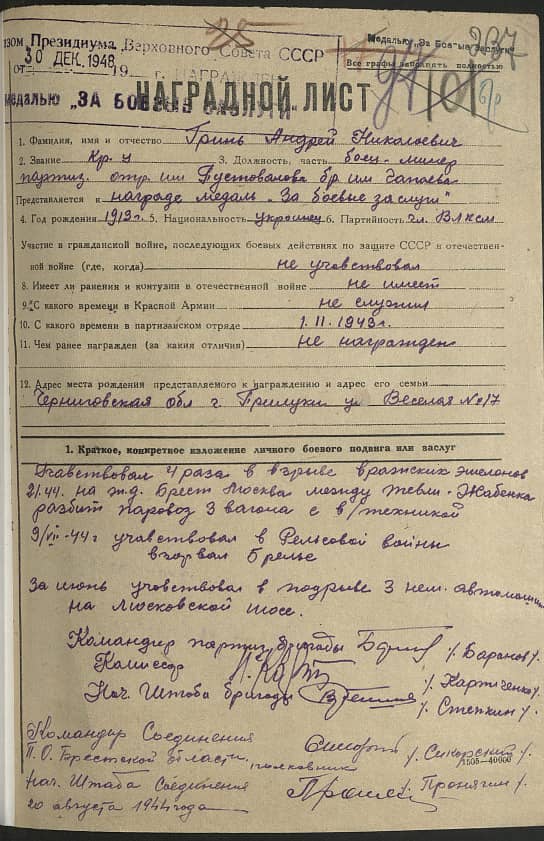 237
25
Медалью „За Боевые Заслуги“
азом Президиума Верховного Совета СССР
Все графы заполнять полностью
30 ДЕК. 1948
от 19 г. НАГРАЖДЕН
НАГРАДНОЙ ЛИСТ
медалью „ЗА БОЕВЫЕ ЗАСЛУГИ“
101
1. Фамилия, имя и отчество Гринь Андрей Николаевич
2. Звание Кр-ц 3. Должность, часть боец-минер
партиз. отр. им Пустованова бр им Чапаева
Представляется к награде медаль „За боевые заслуги“
4. Год рождения 1913 г. 5. Национальность украинец 6. Партийность чл. ВЛКСМ
Участие в гражданской войне, последующих боевых действиях по защите СССР и отечествен-
ной войне (где, когда) не учавствовал
8. Имеет ли ранения и контузии в отечественной войне не имеет
9. С какого времени в Красной Армии не служил
10. С какого времени в партизанском отряде 1. II. 1943 г.
11. Чем ранее награжден (за какия отличия) не награжден
12. Адрес места рождения представляемого к награждению и адрес его семьи
Черниговская обл г. Прилуки ул Веселая № 17
1. Краткое, конкретное изложение личного боевого подвига или заслуг
Учавствовал 4 раза в взрыве вражских эшелонов
на ж.д. Брест Москва между Жабенка
разбит паровоз 3 вагона с в/техникой
9/VII-44 г учавствовал в Рельсовой войны
взорвал 6 рельс
За июнь учавствовал в подрыве 3 нем. автомашин
на Московской шосе.
Командир партиз. бригады /. Баранов /.
Комиссар /. Картченко /.
Нач. Штаба бригады /. Степкин /.
Командир Соединения
П. О. Брестской области полковник /. Сикорский /.
1505—40000
Нач. Штаба Соединения /. Пронягин /.
20 августа 1944 года